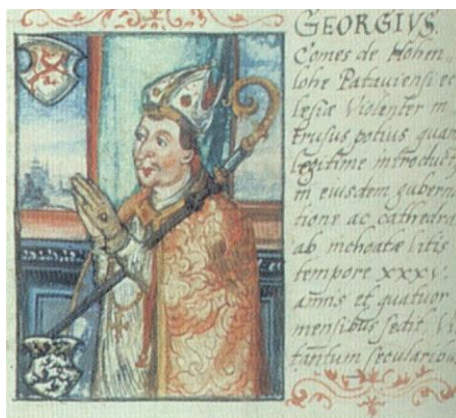 GEORGIVS.
Comes de Hohen„
lohe Pataviensi ec
lesiæ Violenter in
trusus potius, quam
legitime introduct9
in eiusdem guberna
tione ac cathedra
ab inchoatæ litis
tempore xxxv.
annis et quatuor
mensibus sedit. Vi
tantum secularibus